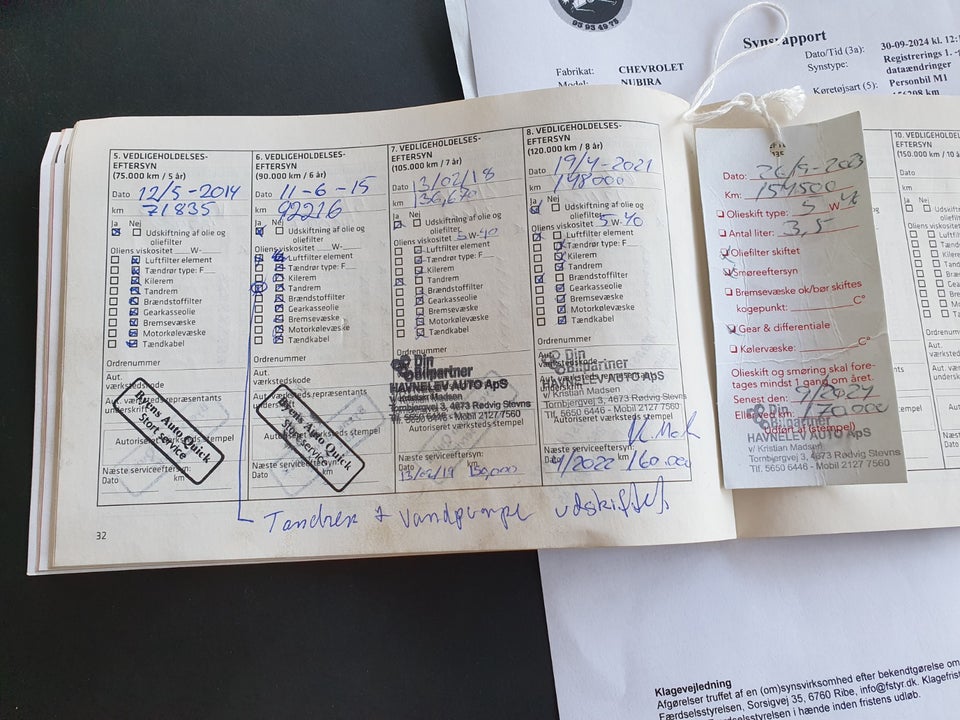 93 93 49 75
Synsrapport
Dato/Tid (3a): 30-09-2024 kl. 12:
Synstype: Registrerings
dataændringer
Køretøjsart (5): Personbil M1
156208 km
Fabrikat: CHEVROLET
Model: NUBIRA
5. VEDLIGEHOLDELSES-
EFTERSYN
(75.000 km / 5 år)
Dato 12/5-2014
km 71835
Ja Nej
Udskiftning af olie og
oliefilter
Oliens viskositet W-
Luftfilter element
Tændrør type: F
Kilerem
Tandrem
Brændstoffilter
Gearkasseolie
Bremsevæske
Motorkølevæske
Tændkabel
Ordrenummer
Aut.
værkstedskode
Aut. værkstedsrepræsentants
underskrift
Byens Auto Quick
Stort service
Autoriseret værksteds stempel
Næste serviceeftersyn:
Dato km
6. VEDLIGEHOLDELSES-
EFTERSYN
(90.000 km / 6 år)
Dato 11-6-15
km 92216
Ja Nej
Udskiftning af olie og
oliefilter
Oliens viskositet W-
Luftfilter element
Tændrør type: F
Kilerem
Tandrem
Brændstoffilter
Gearkasseolie
Bremsevæske
Motorkølevæske
Tændkabel
Ordrenummer
Aut.
værkstedskode
Aut. værkstedsrepræsentants
Byens Auto Quick
Stort service
Autoriseret værksteds stempel
Næste serviceeftersyn:
Dato km
7. VEDLIGEHOLDELSES-
EFTERSYN
(105.000 km / 7 år)
Dato 13/02/18
km 136,670
Ja Nej
Udskiftning af olie og
oliefilter
Oliens viskositet 5W-40
Luftfilter element
Tændrør type: F
Kilerem
Tandrem
Brændstoffilter
Gearkasseolie
Bremsevæske
Motorkølevæske
Tændkabel
Ordrenummer
Din
Bilpartner
HAVNELEV AUTO ApS
v/ Kristian Madsen
Tornbjergvej 3, 4673 Rødvig Stevns
Tlf. 5650 6446 - Mobil 2127 7560
Autoriseret værksteds stempel
Næste serviceeftersyn:
Dato km
13/02/19 150,000
8. VEDLIGEHOLDELSES-
EFTERSYN
(120.000 km / 8 år)
Dato 19/4-2021
km 148000
Ja Nej
Udskiftning af olie og
oliefilter
Oliens viskositet 5W-40
Luftfilter element
Tændrør type: F
Kilerem
Tandrem
Brændstoffilter
Gearkasseolie
Bremsevæske
Motorkølevæske
Tændkabel
Ordrenummer
Aut.
værkstedskode
Din
Bilpartner
HAVNELEV AUTO ApS
v/ Kristian Madsen
Tornbjergvej 3, 4673 Rødvig Stevns
Tlf. 5650 6446 - Mobil 2127 7560
Autoriseret værksteds stempel
Næste serviceeftersyn:
Dato km
4/2022 160.000
Tandrem + Vandpumpe udskiftet
32
Dato: 26/9-2023
Km: 154500
Olieskift type: 5 W 40
Antal liter: 3,5
Oliefilter skiftet
Smøreeftersyn
Bremsevæske ok/bør skiftes
kogepunkt: C°
Gear & differentiale
Kølervæske: C°
Olieskift og smøring skal fore-
tages mindst 1 gang om året.
Senest den: 9/2024
Eller ved km: 170.000
Udført af (stempel)
Din
Bilpartner
HAVNELEV AUTO ApS
v/ Kristian Madsen
Tornbjergvej 3, 4673 Rødvig Stevns
Tlf. 5650 6446 - Mobil 2127 7560
10. VEDLIGEHOLD
EFTERSYN
(150.000 km / 10 å
Dato
km
Ja Nej
Udskiftn
oliefilter
Oliens viskosit
Luftfilter
Tændrør
Kilerem
Tandrem
Brændsto
Gearkass
Bremsev
Motorkøl
Tændkab
Ordrenummer
Aut.
værkstedskode
Aut. værksteds
underskrift
Autoriser
Næste service
Dato
Klagevejledning
Afgørelser truffet af en (om)synsvirksomhed efter bekendtgørelse om
Færdselsstyrelsen, Sorsigvej 35, 6760 Ribe, info@fstyr.dk. Klagefris
Færdselsstyrelsen i hænde inden fristens udløb.